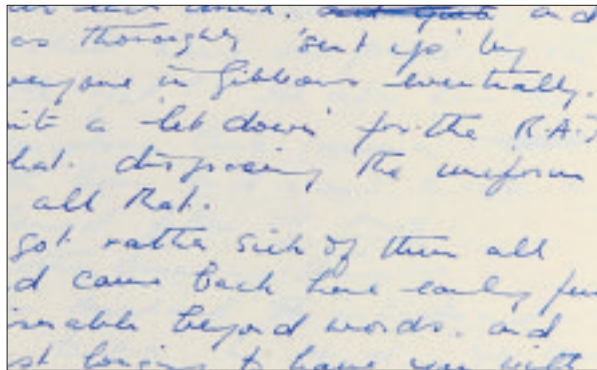 and
as thoroughly 'sent up' by
everyone in Gibbons eventually.
a 'let down' for the R.A.F
that. disgracing the uniform
all that.
got rather sick of them all
d came back here early
miserable beyond words. and
st longing to have you with